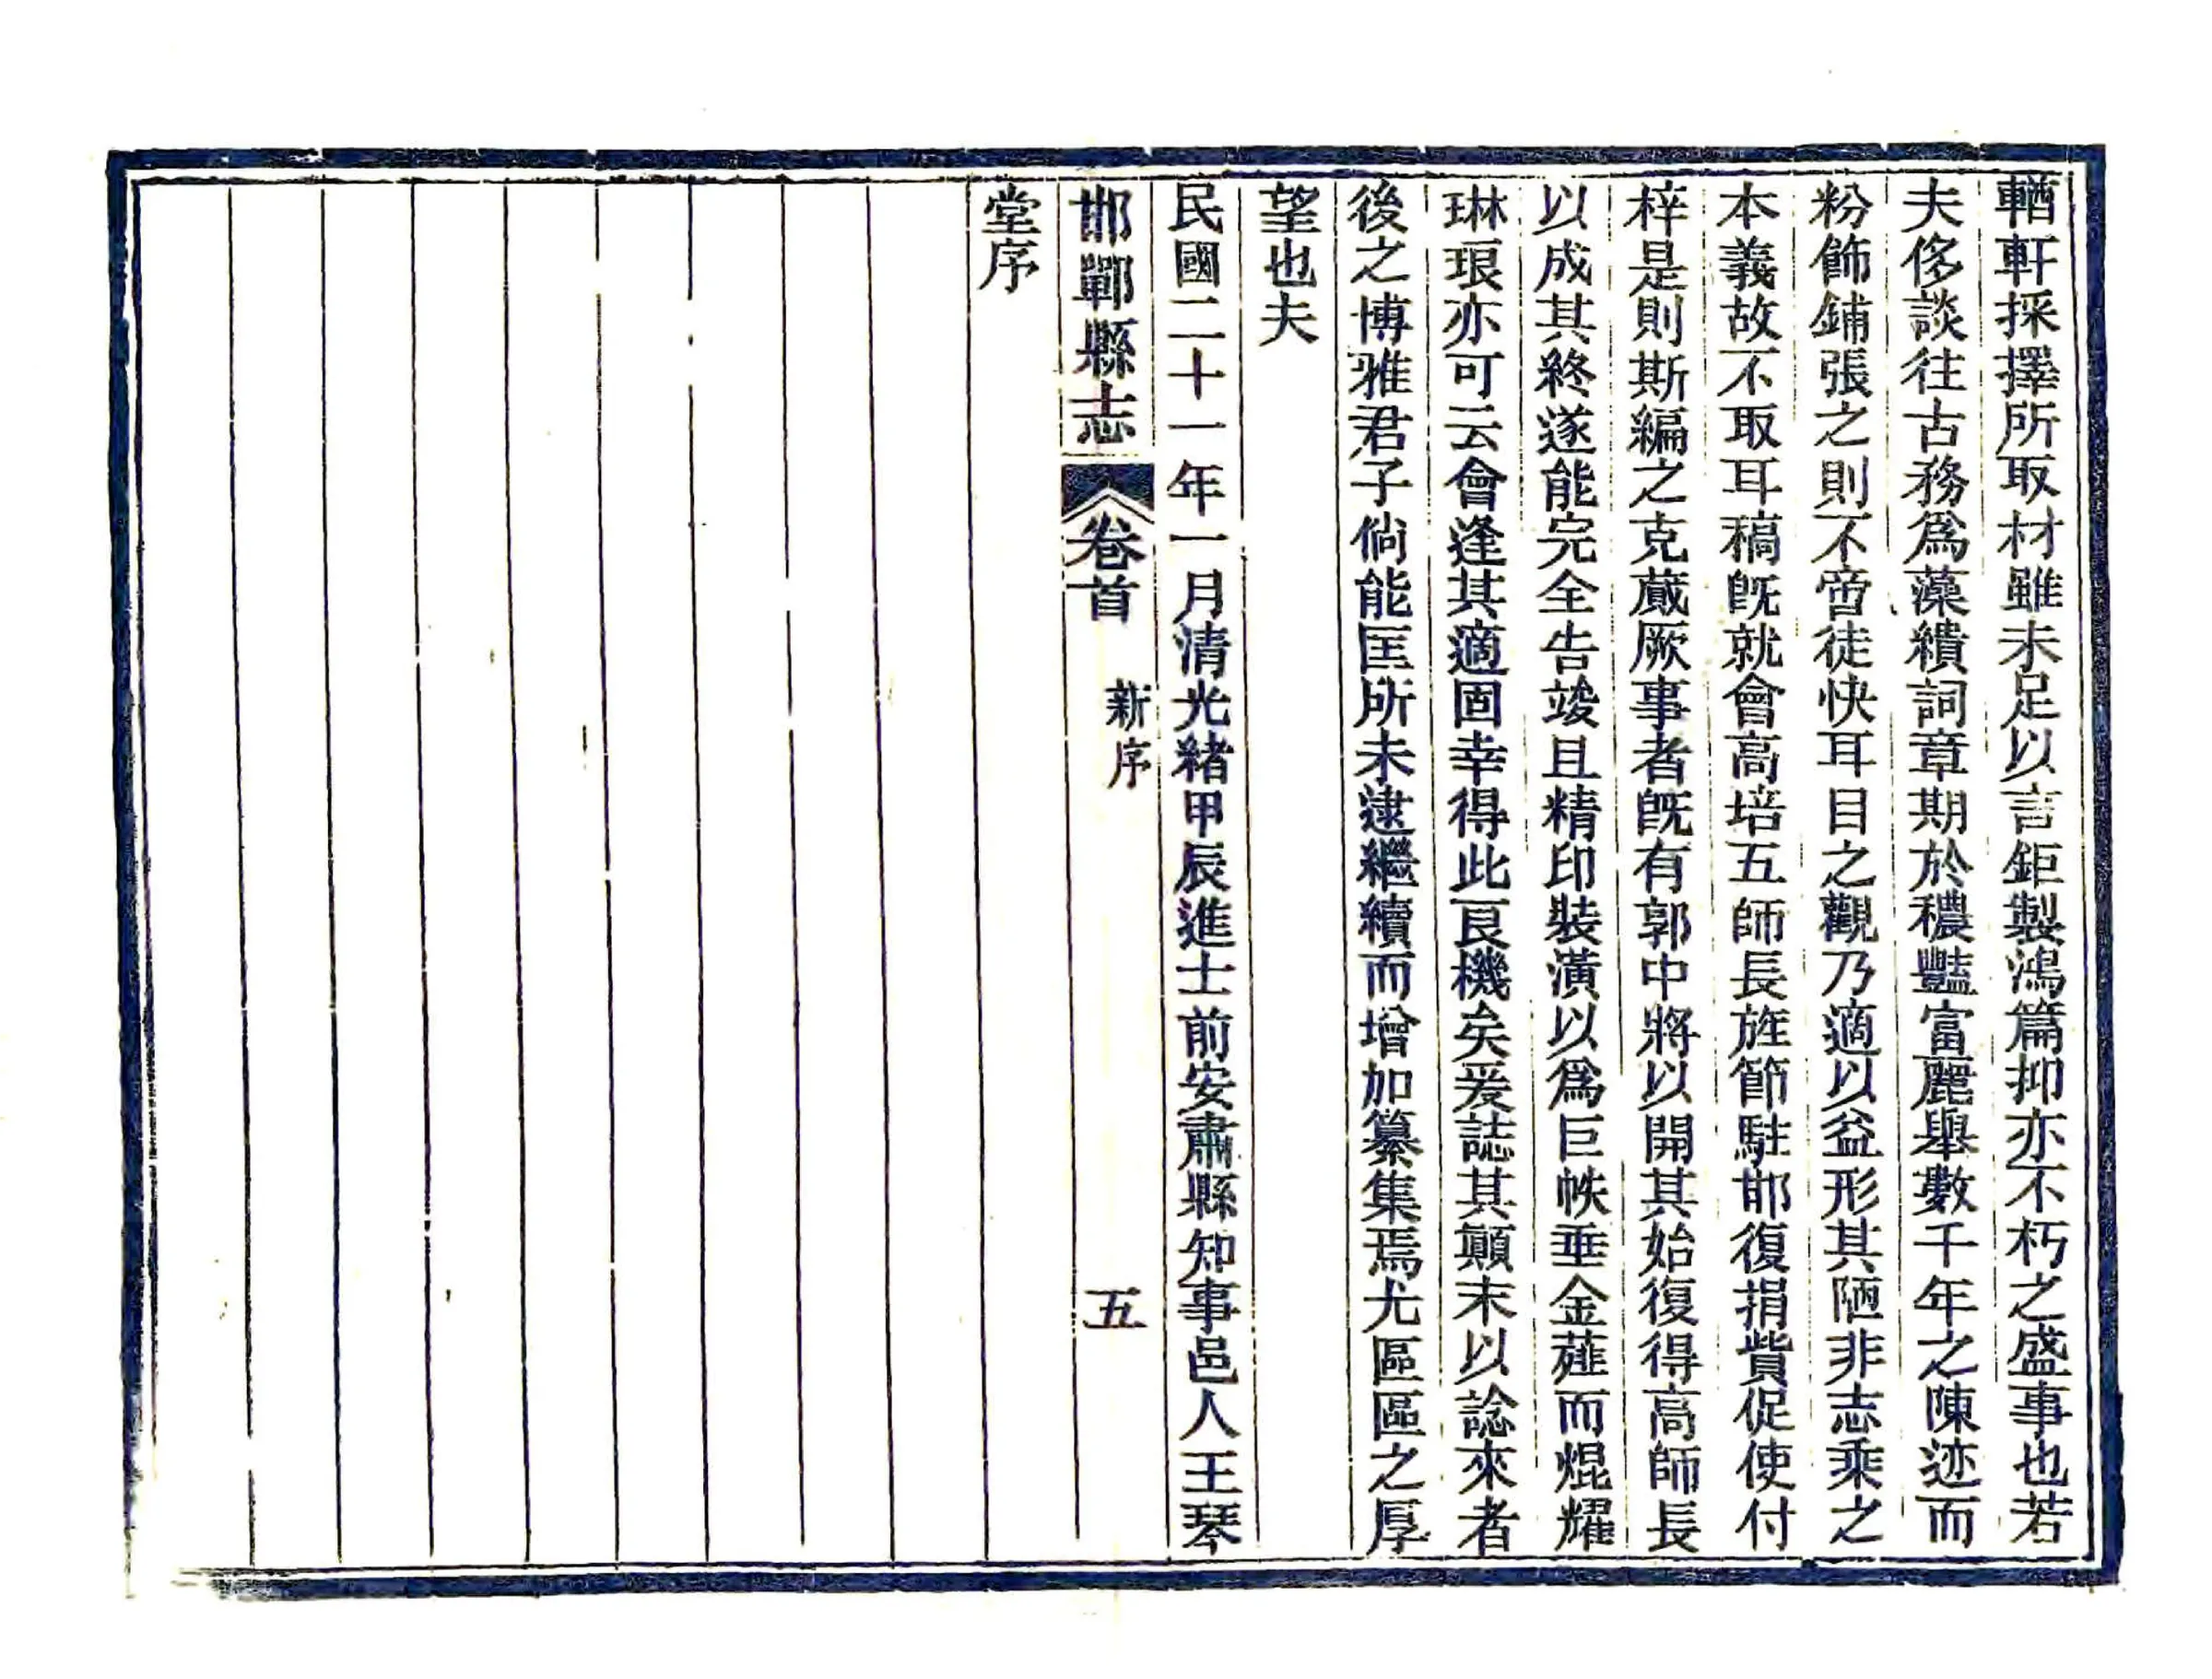 輶軒採擇所取材雖未足以言鉅製鴻篇抑亦不朽之盛事也若
夫侈談往古務爲藻繢詞章期於穠豔富麗舉數千年之陳迹而
粉飾鋪張之則不啻徒快耳目之觀乃適以益形其陋非志乘之
本義故不取耳稿旣就會高培五師長旌節駐邯復捐貲促使付
梓是則斯編之克蕆厥事者旣有郭中將以開其始復得高師長
以成其終遂能完全告竣且精印裝潢以爲巨帙垂金薤而焜耀
琳琅亦可云會逢其適固幸得此良機矣爰誌其顚末以諗來者
後之博雅君子倘能匡所未逮繼續而增加纂集焉尤區區之厚
望也夫
民國二十一年一月清光緒甲辰進士前安肅縣知事邑人王琴
邯鄲縣志 卷首 新序 五
堂序